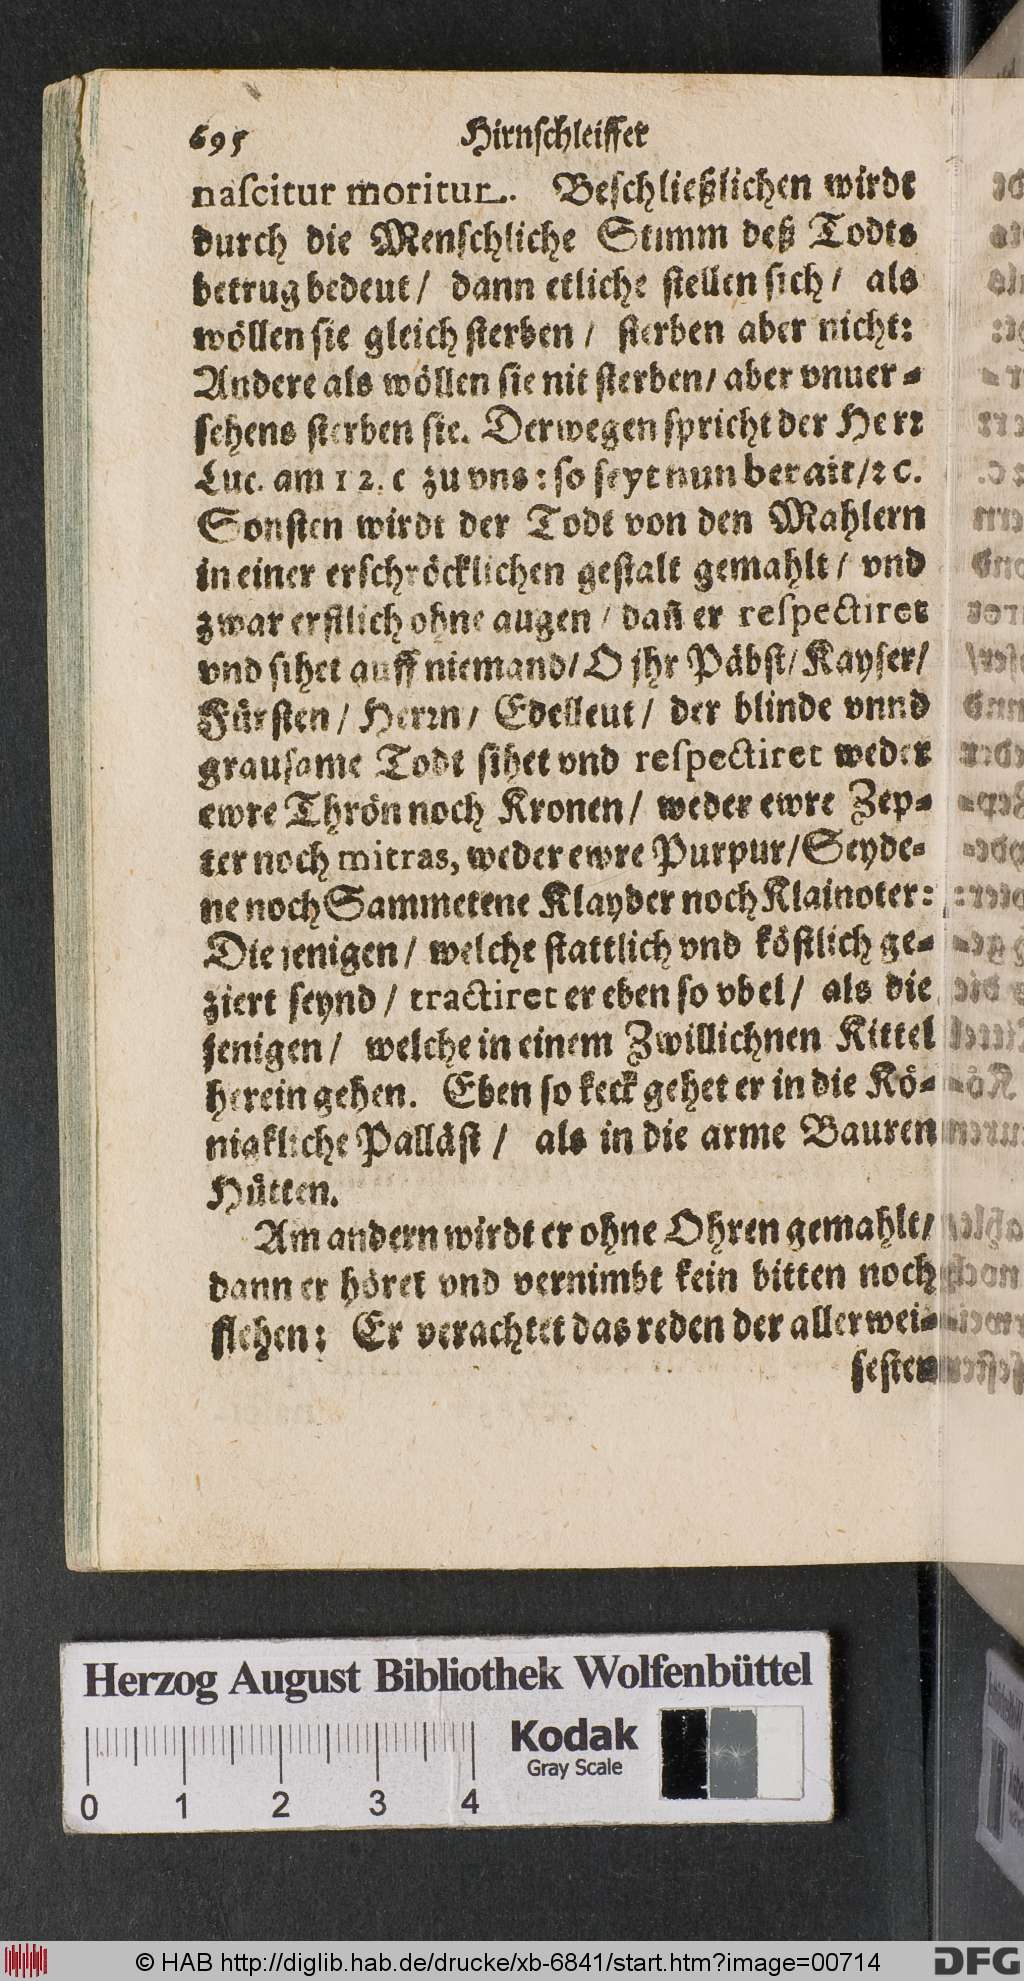 695 Hirnschleiffer
nascitur moritur. Beschließlichen wirdt
durch die Menschliche Stimm deß Todts
betrug bedeut / dann etliche stellen sich / als
wöllen sie gleich sterben / sterben aber nicht:
Andere als wöllen sie nit sterben / aber vnuer=
sehens sterben sie. Derwegen spricht der Herr
Luc. am 12. c zu vns: so seyt nun berait /ꝛc.
Sonsten wirdt der Todt von den Mahlern
in einer erschröcklichen gestalt gemahlt / vnd
zwar erstlich ohne augen / dañ er respectiret
vnd sihet auff niemand / O jhr Päbst / Kayser /
Fürsten / Herrn / Edelleut / der blinde vnnd
grausame Todt sihet vnd respectiret weder
ewre Thrön noch Kronen / weder ewre Zep=
ter noch mitras, weder ewre Purpur / Seyde=
ne noch Sammetene Klayder noch Klainoter:
Die jenigen / welche stattlich vnd köstlich ge=
ziert seynd / tractiret er eben so vbel / als die
jenigen / welche in einem Zwillichnen Kittel
herein gehen. Eben so keck gehet er in die Kö=
nigkliche Palläst / als in die arme Bauren
Hütten.
Am andern wirdt er ohne Ohren gemahlt /
dann er höret vnd vernimbt kein bitten noch
flehen: Er verachtet das reden der allerwei=
sesten
Herzog August Bibliothek Wolfenbüttel
Kodak
Gray Scale
0 1 2 3 4
© HAB http://diglib.hab.de/drucke/xb-6841/start.htm?image=00714
DFG